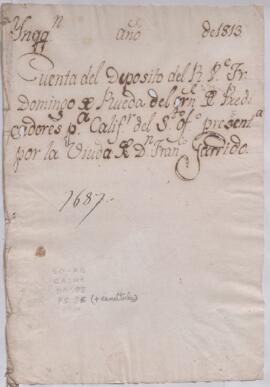 Ynqq.n año de 1813
Cuenta del Deposito del R. P.e Fr.
Domingo de Rueda del orn. de Predi
cadores p.a Calif.r del S.to Of.o present.a
por la Viuda de D.n Fran.co Garrido.
1687.
(+ carátula)